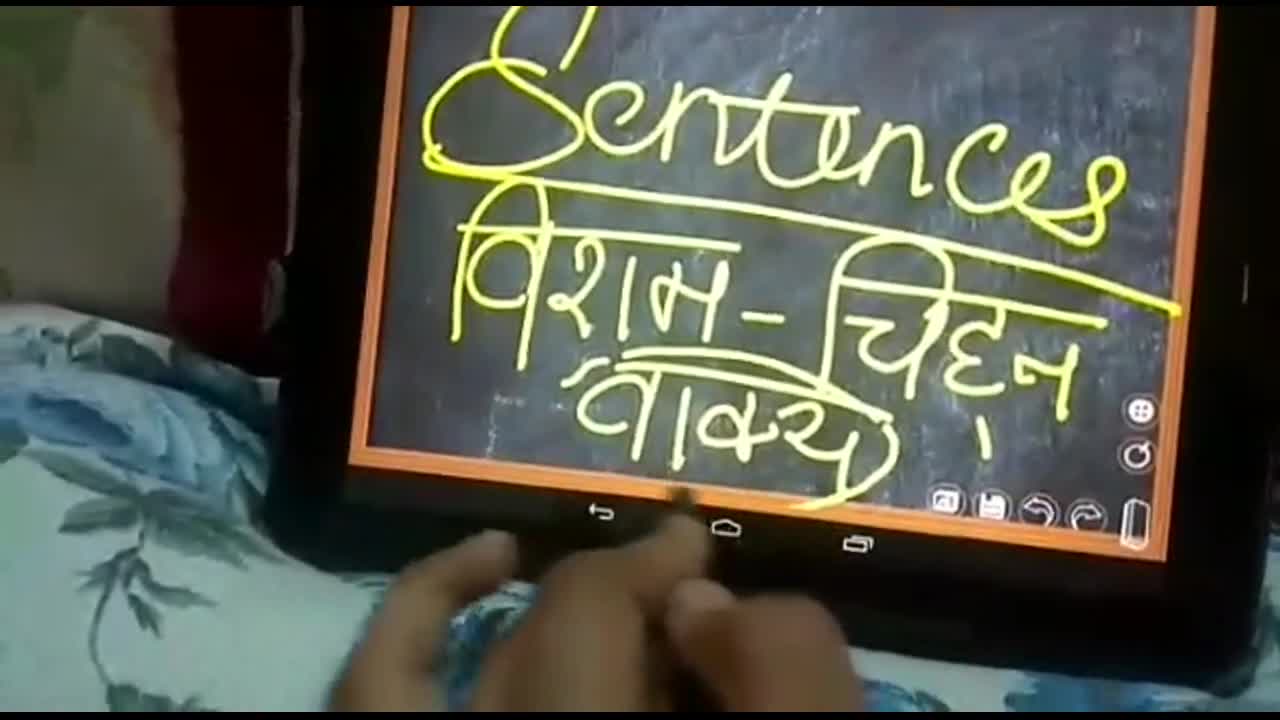 Sentences
विशाम - चिहन
वाक्य ।